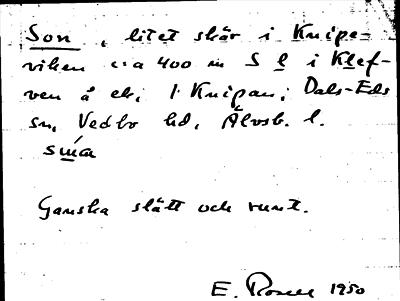 Son, litet skär i Knipe-
viken c:a 400 m S l i Klef-
ven å ek. 1 Knipan, Dals-Eds
sn, Vedbo hd, Älvsb. l.
Ganska slätt och runt.
E. 1950